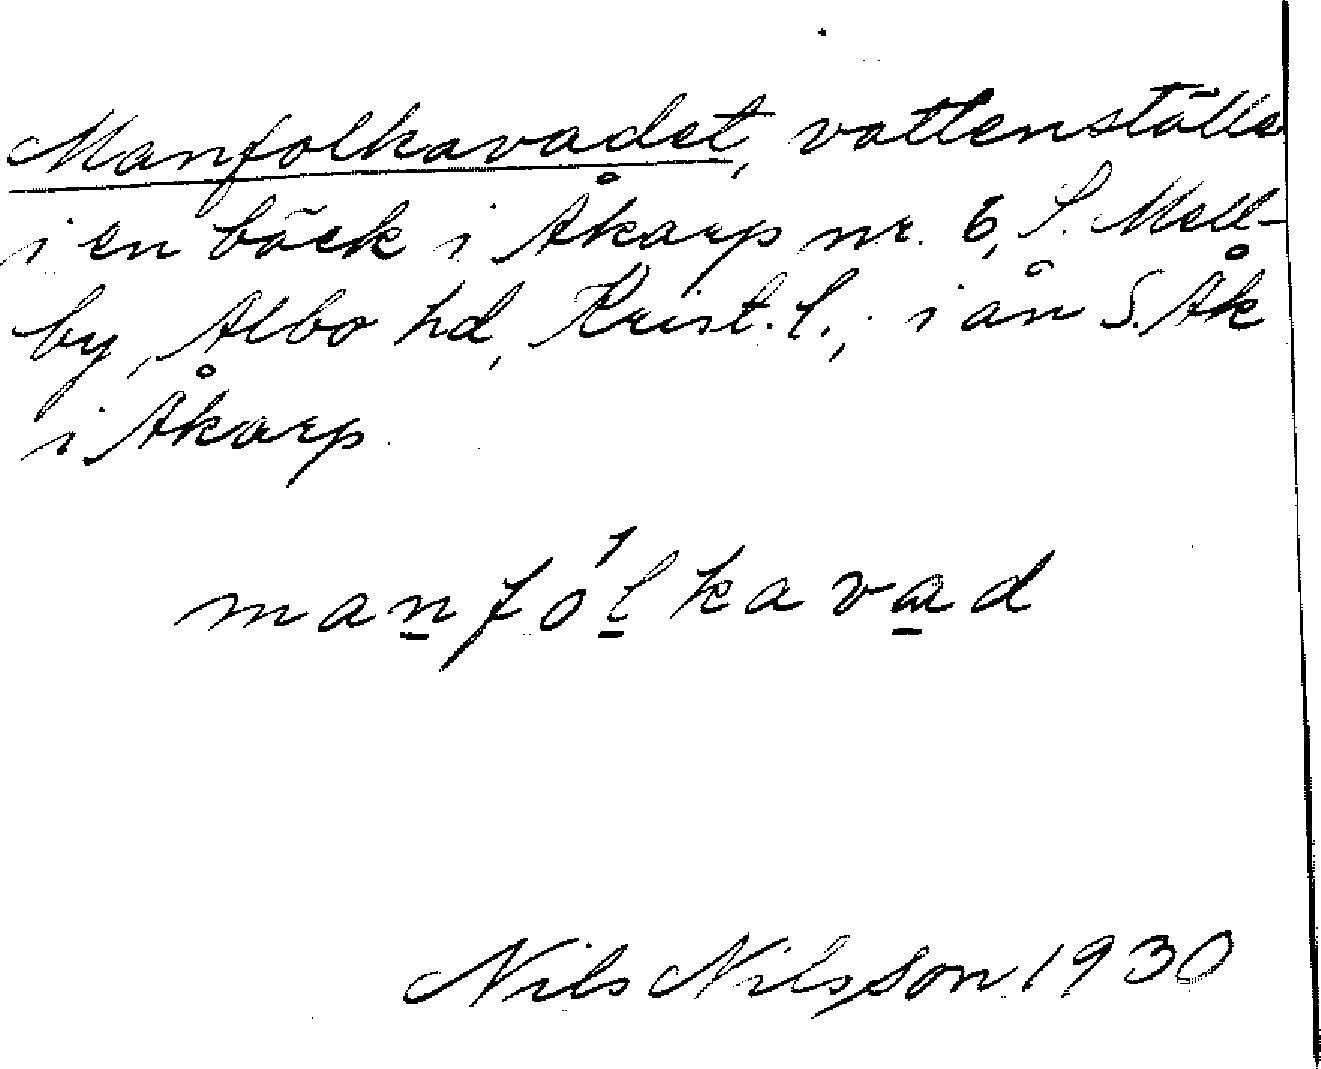 Manfolkavadet, vattenställe
i en bäck i Åkarp nr. 6, S. Mell-
by, Albo hd, Krist. l., i ån S. Åk
i Åkarp.
manfólkavad
Nils Nilsson 1930